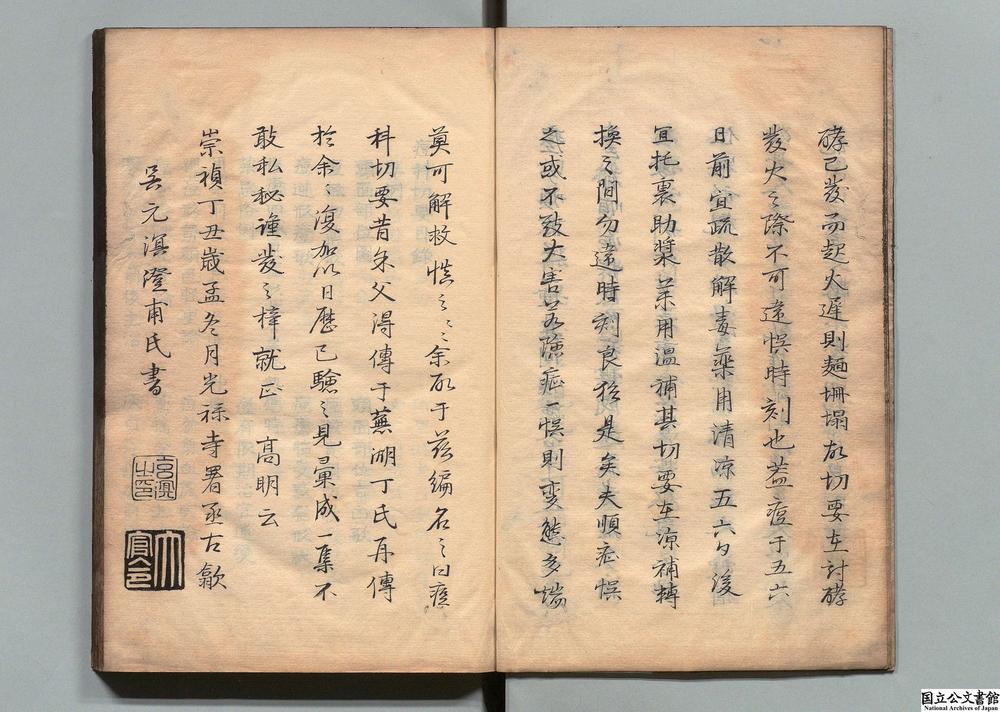 酵已發而起火遲則麵坍塌故切要在討酵
發火之際不可違悞時刻也蓋痘于五六
日前宜疏散解毒藥用清凉五六日後
宜托裏助漿藥用溫補其切要在凉補轉
換之間勿違時刻良猶是矣夫順症悞
之或不致大害若險症一悞則變態多端
莫可解救慎之々余故于茲編名之曰痘
科切要昔余父得傳于蕪湖丁氏再傳
於余々復加以日歷已驗之見彙成一集不
敢私秘謹發之梓就正 高明云
崇禎丁丑歲孟冬月光祿寺署丞古歙
吳元溟澄甫氏書
国立公文書館
National Archives of Japan